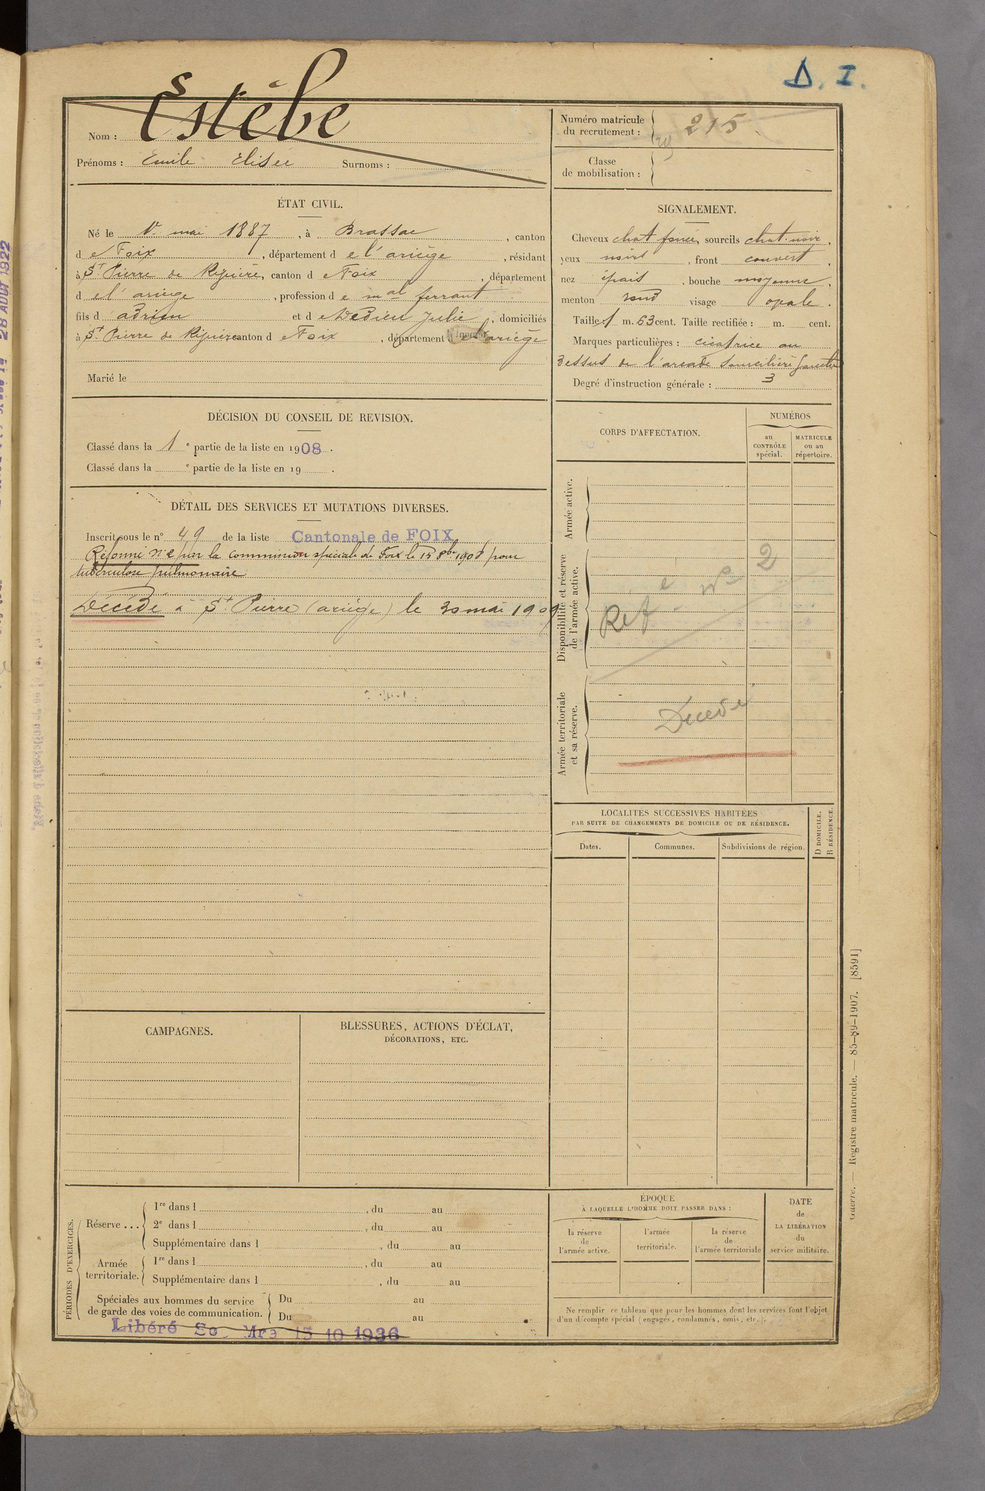 D. I.
Estèbe
Nom :
Prénoms : Emile Elisée Surnoms :
Numéro matricule
du recrutement : 215
Classe
de mobilisation :
ÉTAT CIVIL.
Né le 1er mai 1887, à Brassac, canton
d e Foix, département d e l'ariège, résidant
à St Pierre de Rivière, canton d e Foix, département
d e l'ariège, profession d e mal ferrant
fils d adrien et d e Dedieu Julie, domiciliés
à St Pierre de Rivière canton d e Foix, département d e l'ariège
Marié le
SIGNALEMENT.
Cheveux chat foncé, sourcils chat noir,
yeux noirs, front couvert,
nez épais, bouche moyenne,
menton rond visage ovale.
Taille 1 m. 63 cent. Taille rectifiée : m. cent.
Marques particulières : cicatrice au
dessus de l'arcade sourcilière gauche
Degré d'instruction générale : 3
DÉCISION DU CONSEIL DE REVISION.
Classé dans la 1e partie de la liste en 1908.
Classé dans la e partie de la liste en 19 .
DÉTAIL DES SERVICES ET MUTATIONS DIVERSES.
Inscrit sous le n° 49 de la liste Cantonale de FOIX
Réformé n° 2 par la commission spéciale de Foix le 15 8bre 1908 pour
tuberculose pulmonaire
Décédé à St Pierre (ariège) le 30 mai 1909
CORPS D'AFFECTATION.
NUMÉROS
au
CONTRÔLE
spécial.
MATRICULE
ou au
répertoire.
Armée active.
Disponibilité et réserve
de l'armée active.
Réfé n° 2
Armée territoriale
et sa réserve.
Décédé
LOCALITÉS SUCCESSIVES HABITÉES
PAR SUITE DE CHANGEMENTS DE DOMICILE OU DE RÉSIDENCE.
Dates.
Communes.
Subdivisions de région.
D DOMICILE.
R RÉSIDENCE.
CAMPAGNES.
BLESSURES, ACTIONS D'ÉCLAT,
DÉCORATIONS, ETC.
PÉRIODES D'EXERCICES.
Réserve ...
1re dans l , du au
2e dans l , du au
Supplémentaire dans l , du au
Armée
territoriale.
1re dans l , du au
Supplémentaire dans l , du au
Spéciales aux hommes du service
de garde des voies de communication.
Du au
Du au
Libéré Se Mre 15 10 1936
ÉPOQUE
À LAQUELLE L'HOMME DOIT PASSER DANS :
la réserve
de
l'armée active.
l'armée
territoriale.
la réserve
de
l'armée territoriale
DATE
de
LA LIBÉRATION
du
service militaire.
Ne remplir ce tableau que pour les hommes dont les services font l'objet
d'un décompte spécial (engagés, condamnés, omis, etc.).
Guerre. — Registre matricule. — 85-89-1907. [8591]
28 AOUT 1922